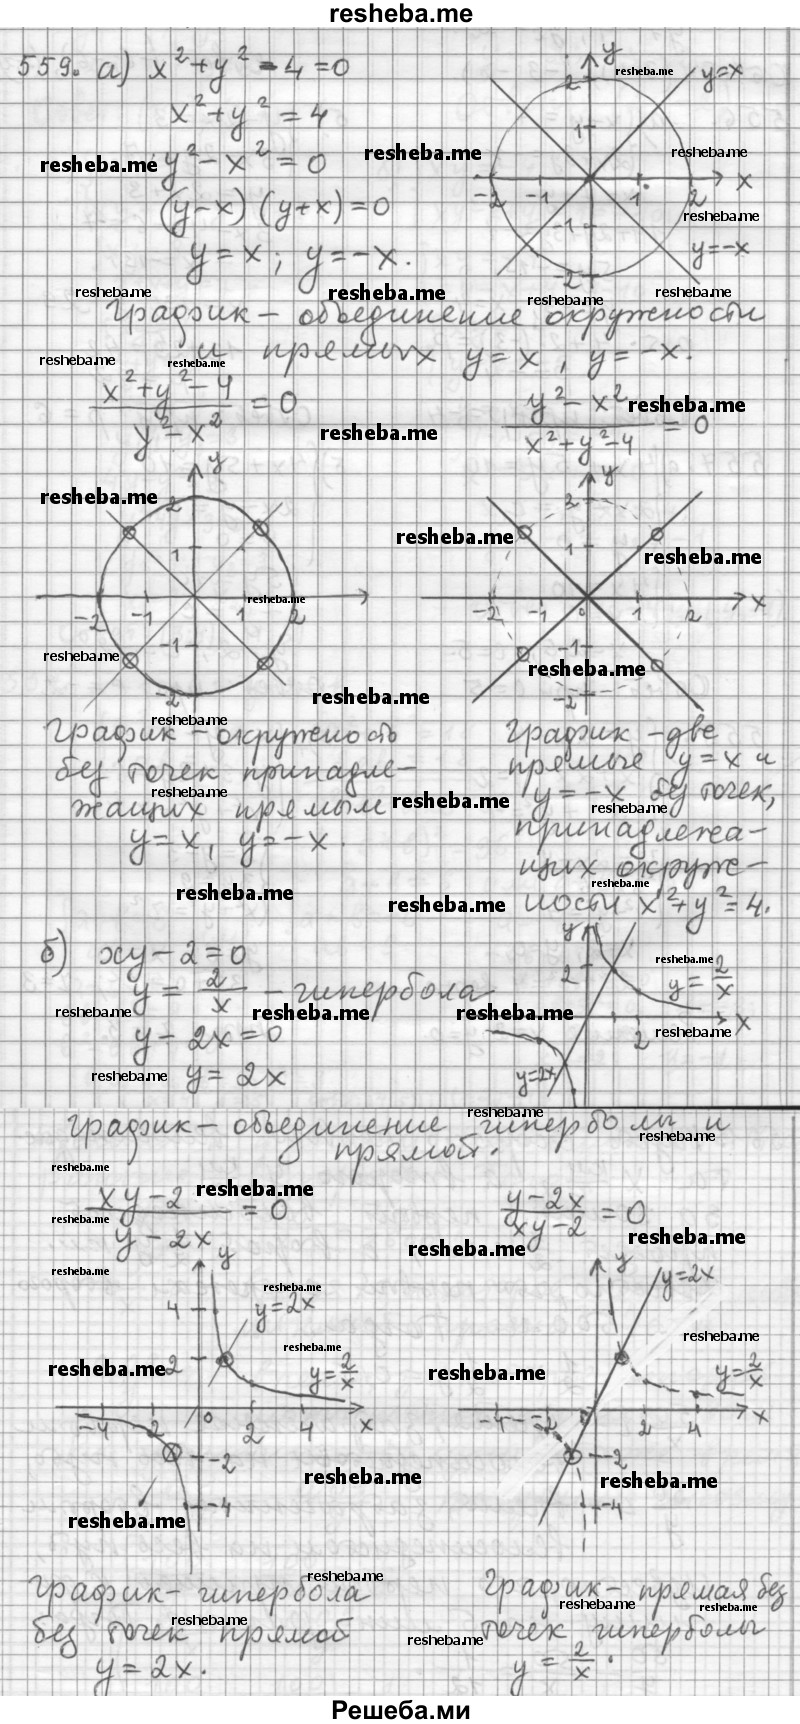 resheba.me
559. а) x²+y²-4=0
x²+y²=4
y²-x²=0
(y-x)(y+x)=0
y=x; y=-x.
y
2
1
-2 -1 1 2 x
-1
-2
y=x
y=-x
График - объединение окружности
и прямых y=x, y=-x.
(x²+y²-4)/(y²-x²) = 0
(y²-x²)/(x²+y²-4) = 0
y
2
1
-2 -1 1 2
-1
-2
y
2
1
-2 -1 0 1 2 x
-1
-2
График - окружность
без точек принадле-
жащих прямым
y=x, y=-x.
График - две
прямые y=x и
y=-x без точек,
принадлежа-
щих окруж-
ности x²+y²=4.
б) xy-2=0
y = 2/x - гипербола
y-2x=0
y=2x
y
2
y=2/x
2 x
y=2x
График - объединение гиперболы и
прямой.
(xy-2)/(y-2x) = 0
(y-2x)/(xy-2) = 0
y
4
y=2x
2
y=2/x
-4 -2 0 2 4 x
-2
-4
y
y=2x
y=2/x
-4 -2 2 4 x
-2
-4
График - гипербола
без точек прямой
y=2x.
График - прямая без
точек гиперболы
y = 2/x.
Решеба.ми